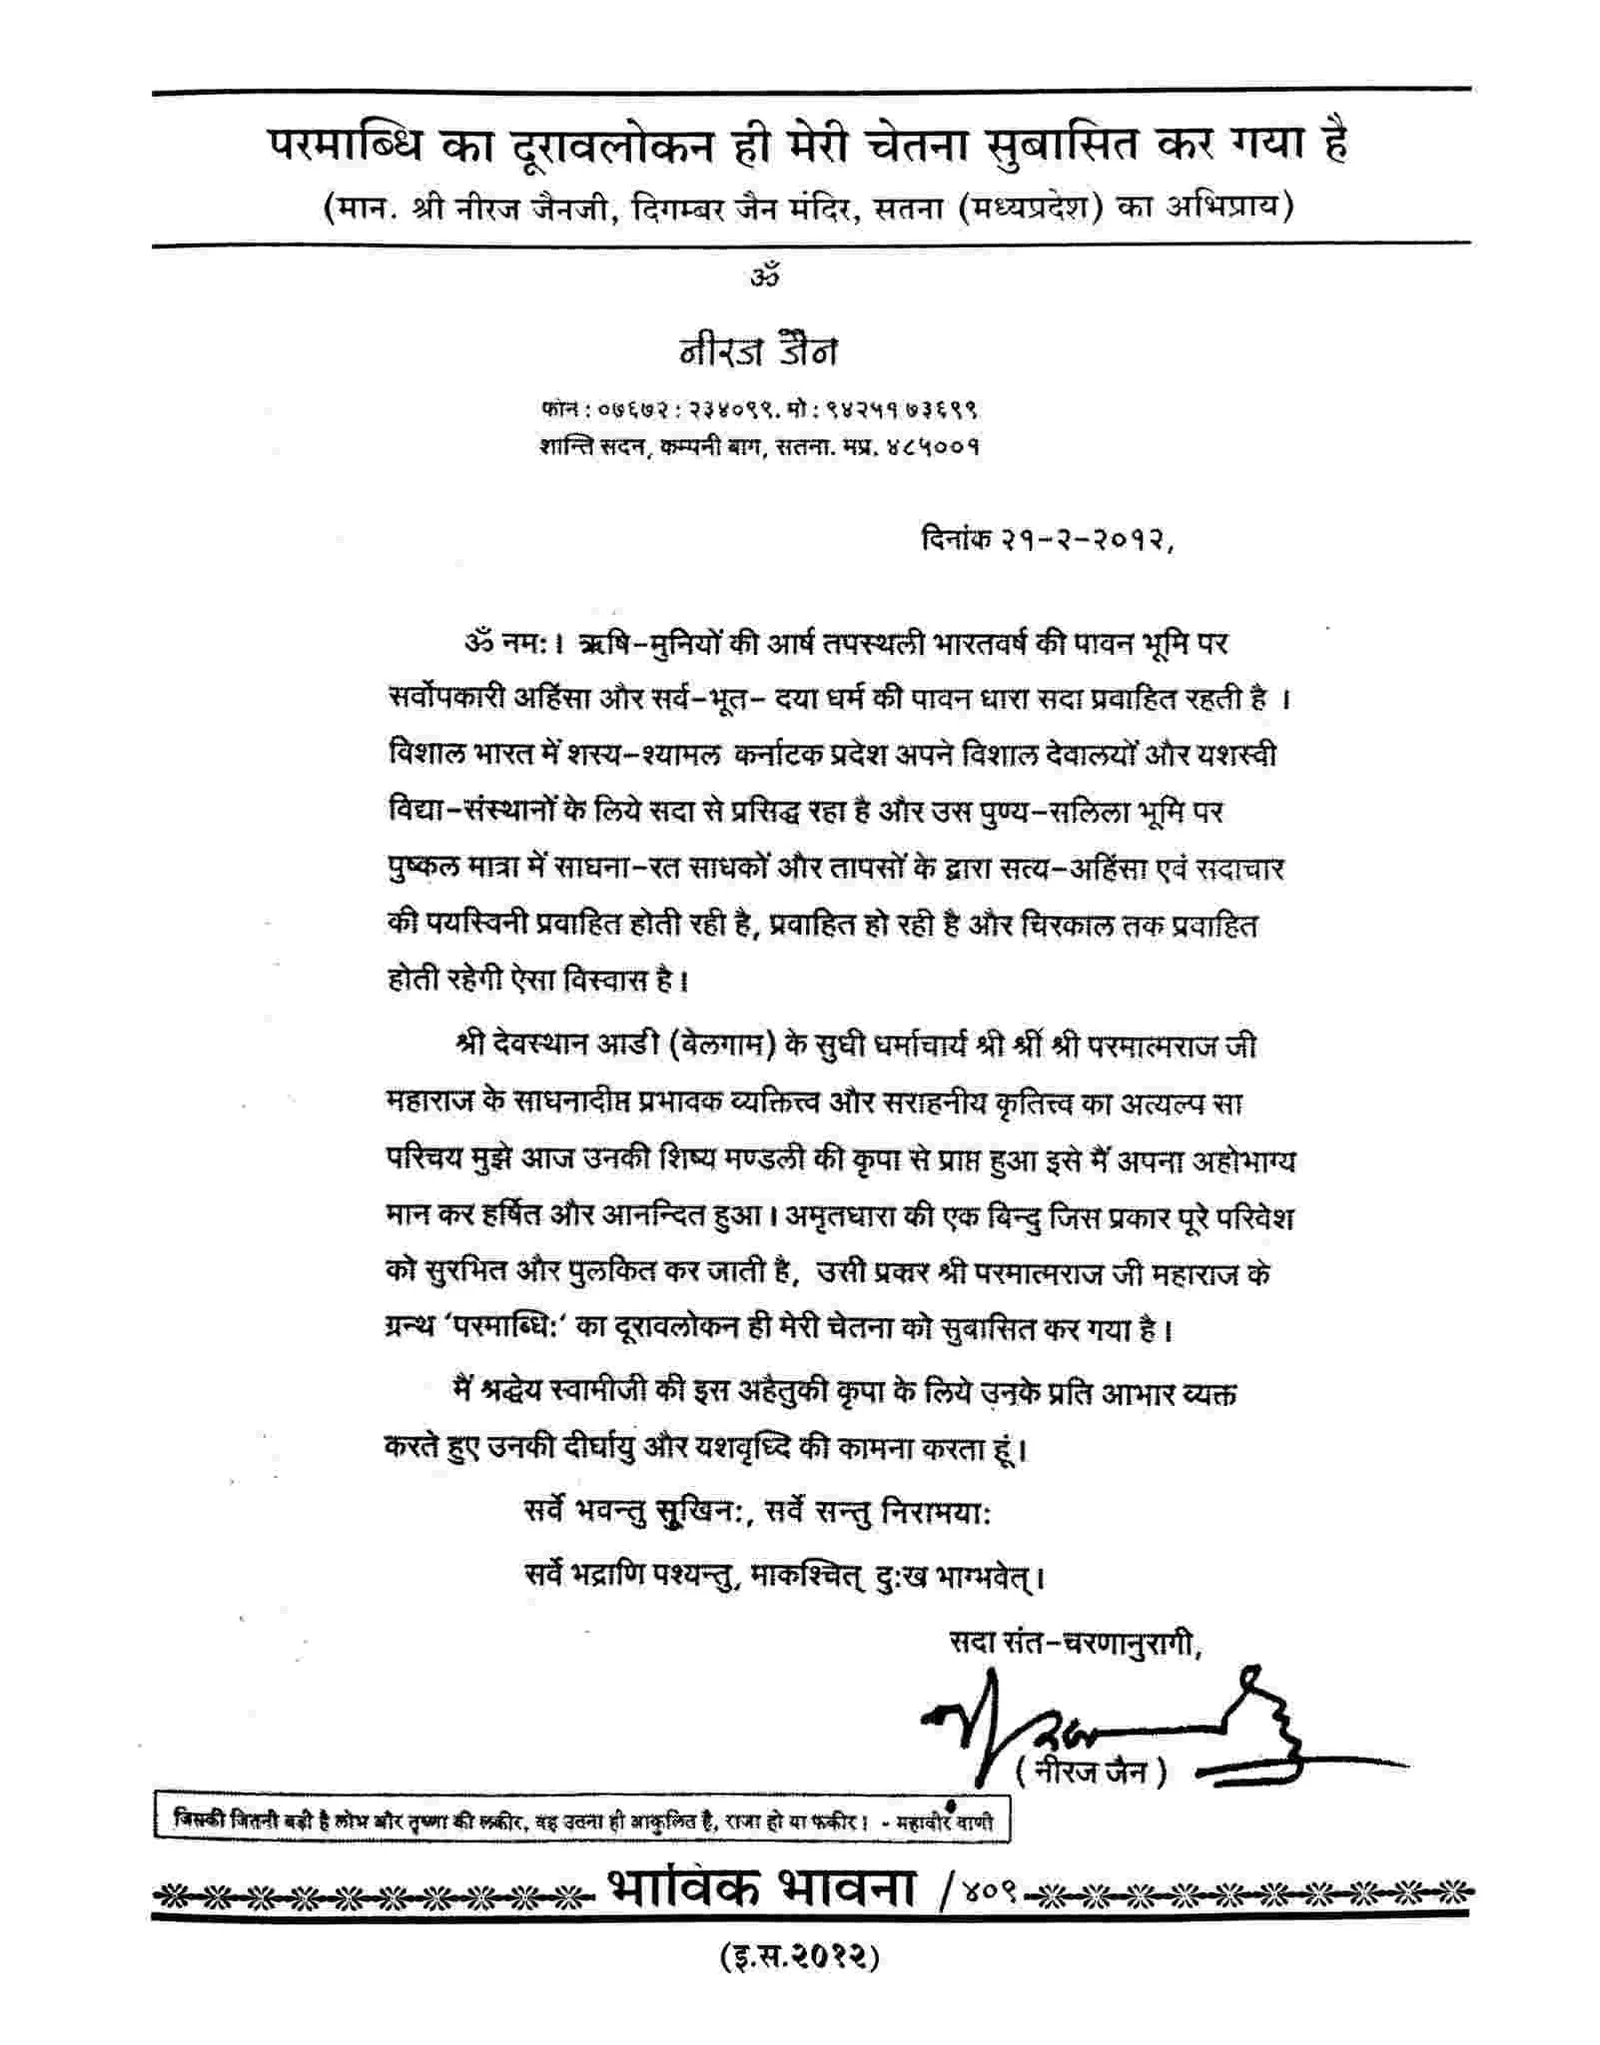 परमाब्धि का दूरावलोकन ही मेरी चेतना सुबासित कर गया है
(मान. श्री नीरज जैनजी, दिगम्बर जैन मंदिर, सतना (मध्यप्रदेश) का अभिप्राय)
ॐ
नीरज जैन
फोन : ०७६७२ : २३४०९९. मो : ९४२५१ ७३६९९
शान्ति सदन, कम्पनी बाग, सतना. मप्र. ४८५००१
दिनांक २१-२-२०१२,
ॐ नमः। ऋषि-मुनियों की आर्ष तपस्थली भारतवर्ष की पावन भूमि पर
सर्वोपकारी अहिंसा और सर्व-भूत- दया धर्म की पावन धारा सदा प्रवाहित रहती है ।
विशाल भारत में शस्य-श्यामल कर्नाटक प्रदेश अपने विशाल देवालयों और यशस्वी
विद्या-संस्थानों के लिये सदा से प्रसिद्ध रहा है और उस पुण्य-सलिला भूमि पर
पुष्कल मात्रा में साधना-रत साधकों और तापसों के द्वारा सत्य-अहिंसा एवं सदाचार
की पयस्विनी प्रवाहित होती रही है, प्रवाहित हो रही है और चिरकाल तक प्रवाहित
होती रहेगी ऐसा विस्वास है।
श्री देवस्थान आडी (बेलगाम) के सुधी धर्माचार्य श्री श्री श्री परमात्मराज जी
महाराज के साधनादीप्त प्रभावक व्यक्तित्त्व और सराहनीय कृतित्त्व का अत्यल्प सा
परिचय मुझे आज उनकी शिष्य मण्डली की कृपा से प्राप्त हुआ इसे मैं अपना अहोभाग्य
मान कर हर्षित और आनन्दित हुआ। अमृतधारा की एक बिन्दु जिस प्रकार पूरे परिवेश
को सुरभित और पुलकित कर जाती है, उसी प्रकार श्री परमात्मराज जी महाराज के
ग्रन्थ ‘परमाब्धिः‘ का दूरावलोकन ही मेरी चेतना को सुबासित कर गया है।
मैं श्रद्धेय स्वामीजी की इस अहैतुकी कृपा के लिये उनके प्रति आभार व्यक्त
करते हुए उनकी दीर्घायु और यशवृध्दि की कामना करता हूं।
सर्वे भवन्तु सुखिनः, सर्वे सन्तु निरामयाः
सर्वे भद्राणि पश्यन्तु, माकश्चित् दुःख भाग्भवेत्।
सदा संत-चरणानुरागी,
(नीरज जैन)
जिसकी जितनी बड़ी है लोभ और तृष्णा की लकीर, वह उतना ही आकुलित है, राजा हो या फकीर। - महावीर वाणी
भाविक भावना / ४०९
(इ.स.२०१२)